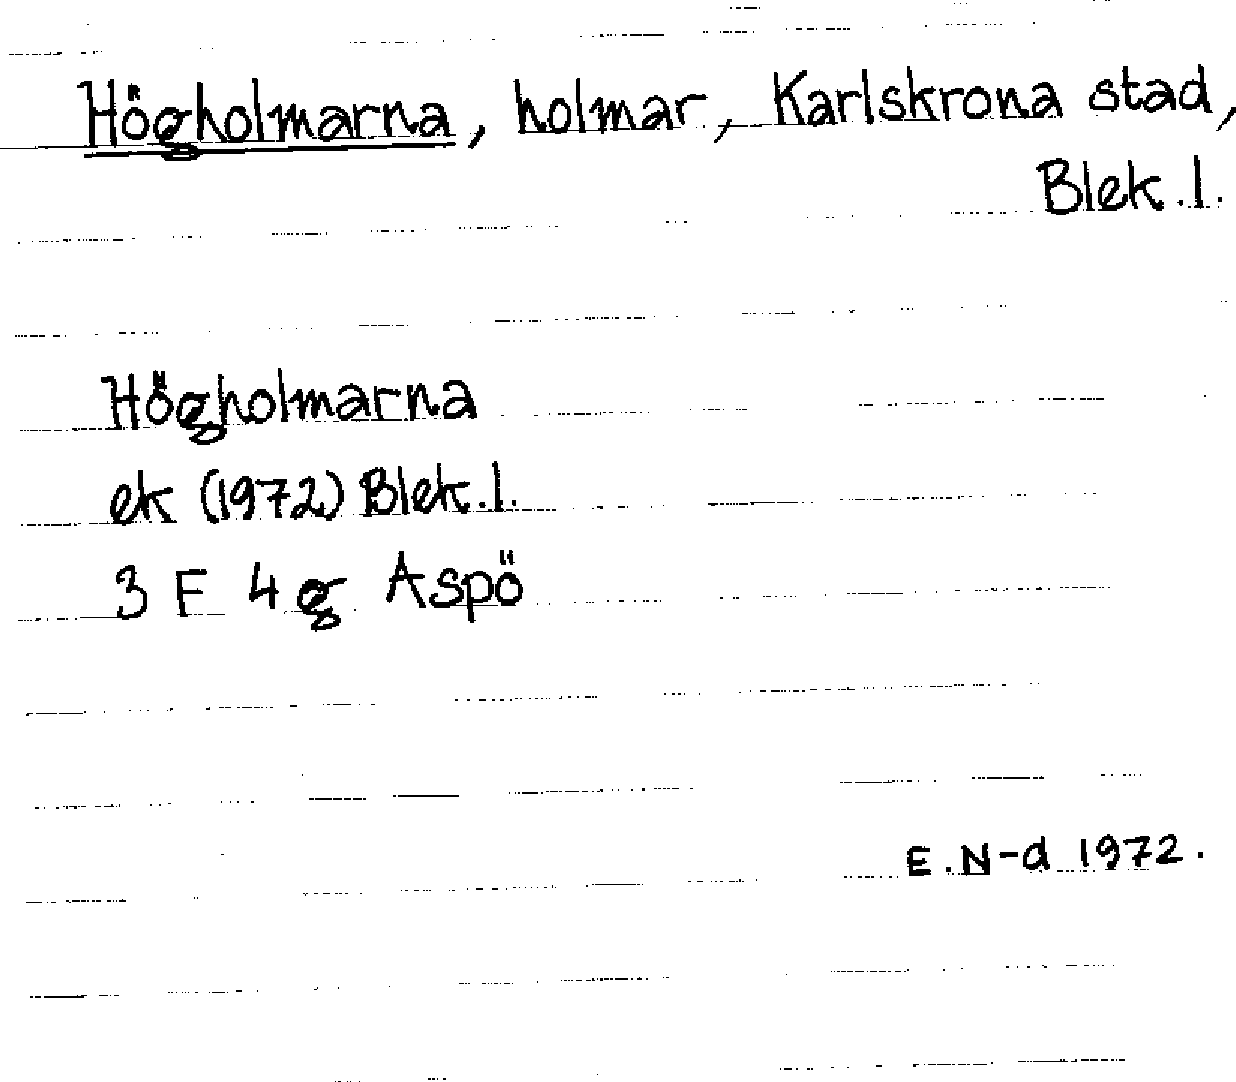 Högholmarna, holmar, Karlskrona stad,
Blek.l.
Högholmarna
ek (1972) Blek.l.
3 F 4g Aspö
E.N-d 1972.